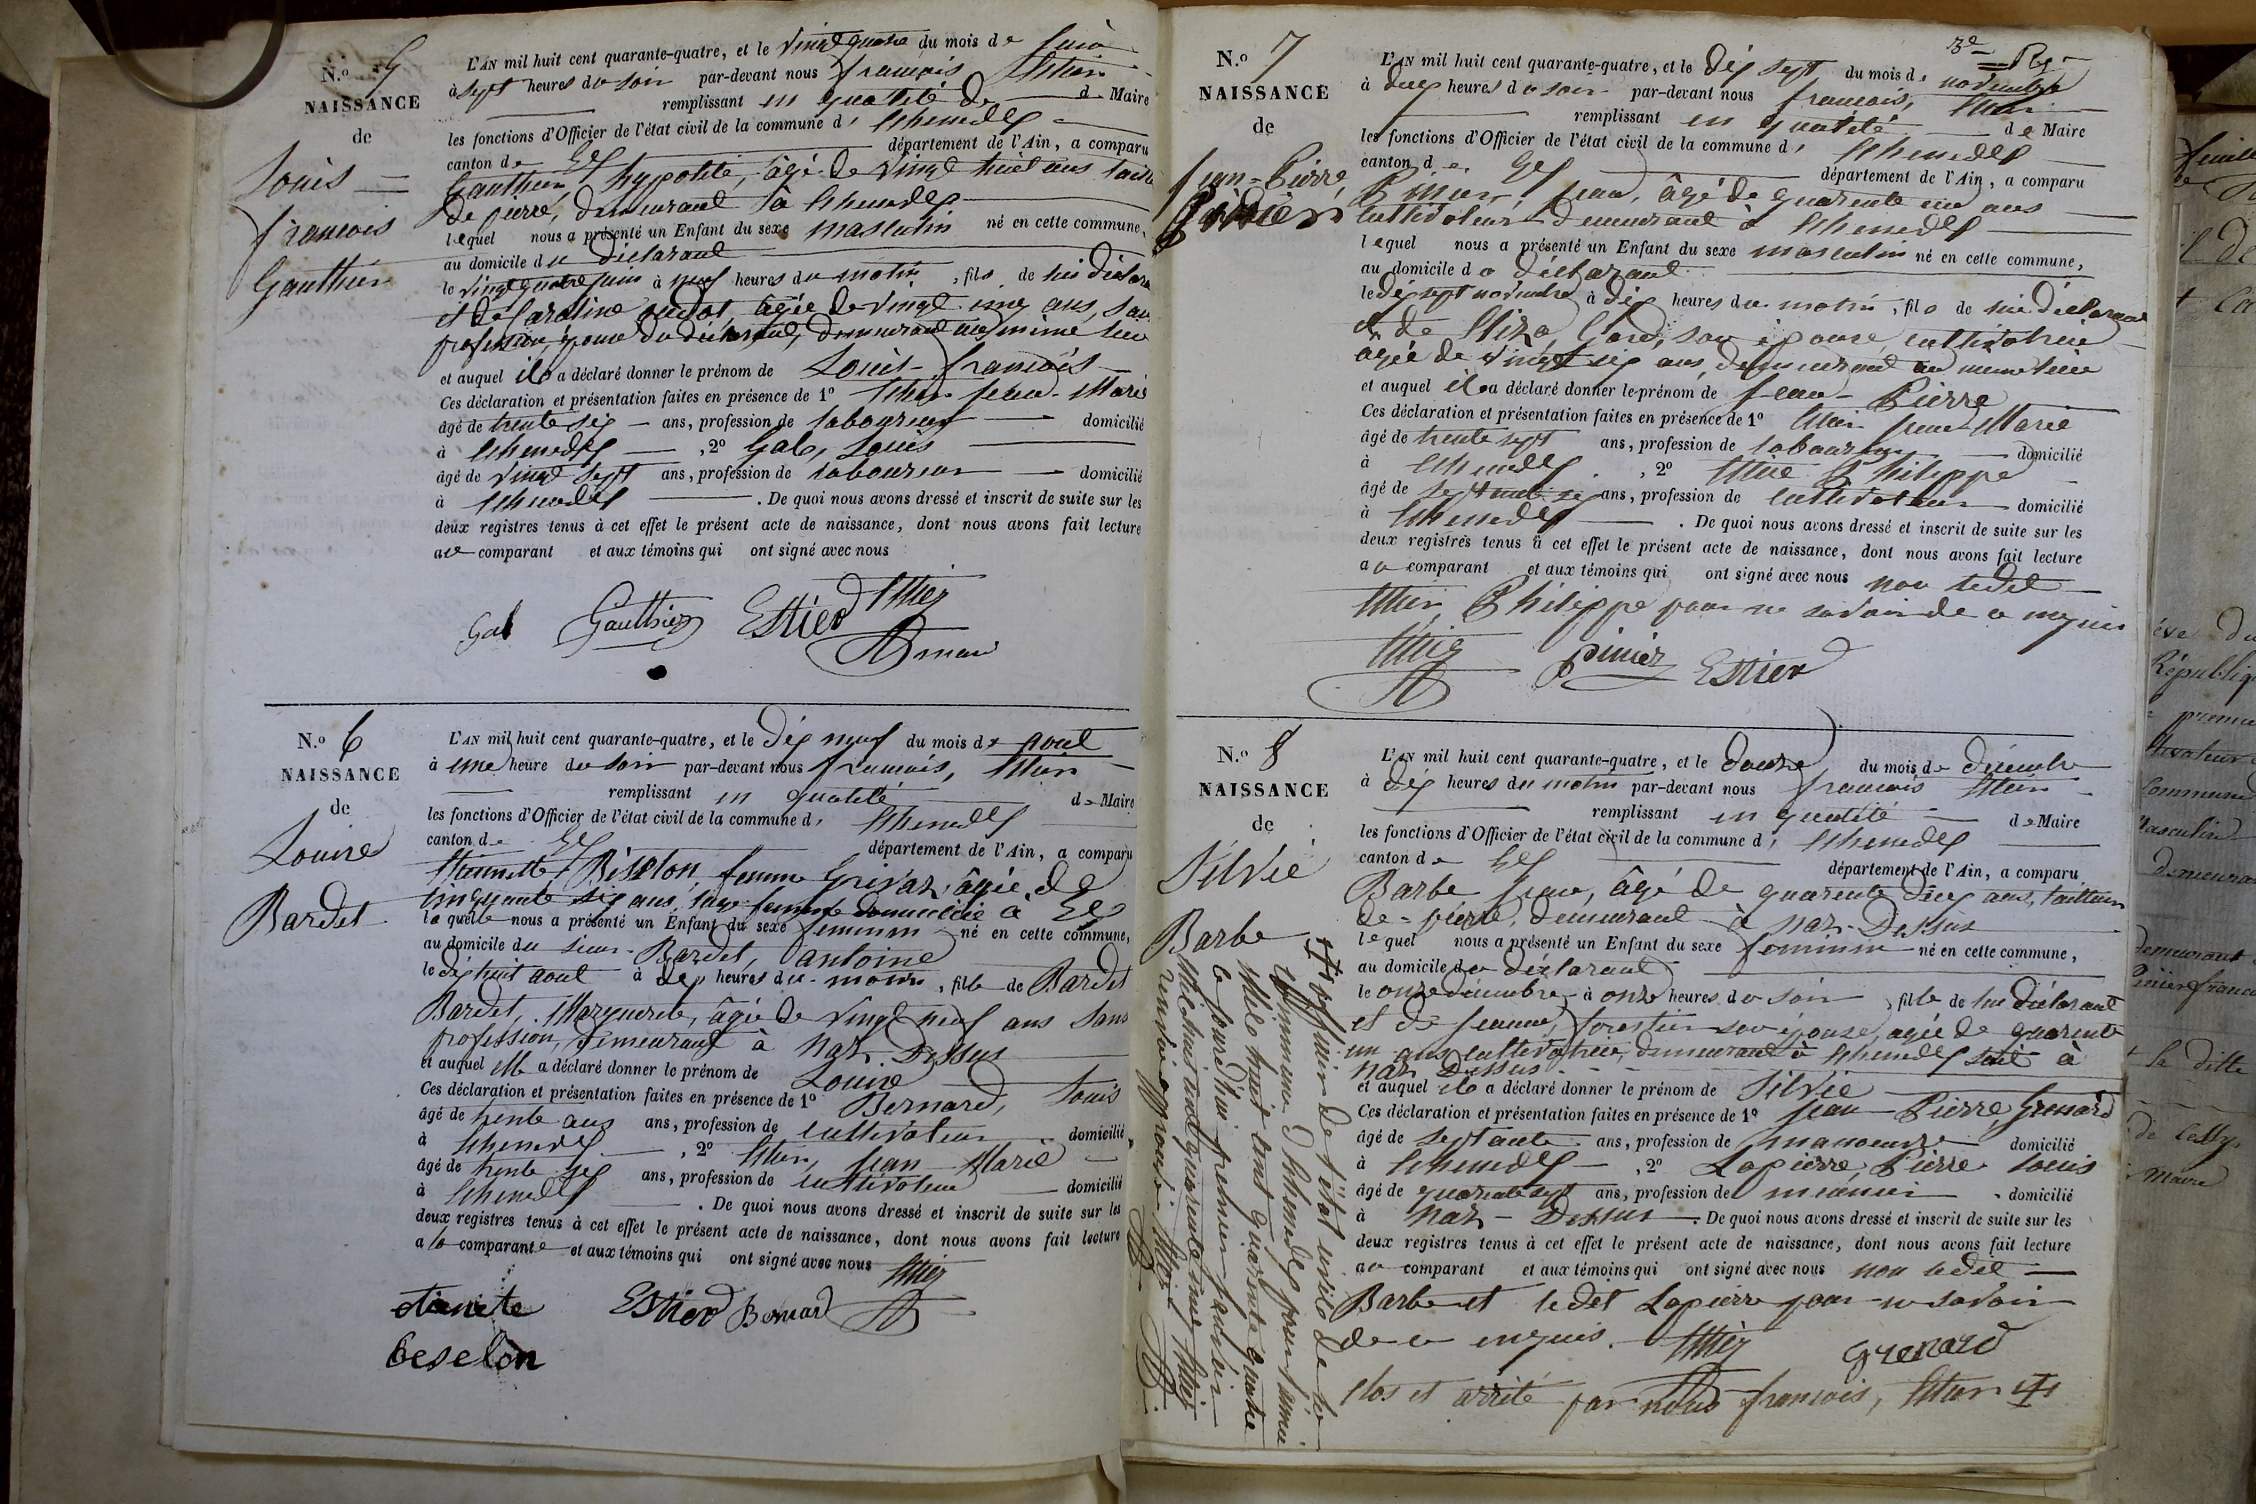 N.o 5
NAISSANCE
de
Louis
françois
Gauthier
L'AN mil huit cent quarante-quatre, et le vingt quatre du mois de juin
à sept heures du soir par-devant nous françois Ettier
remplissant en qualité de de Maire
les fonctions d'Officier de l'état civil de la commune d' Echenedex
canton de Gex département de l'Ain, a comparu
Gauthier, hyppolite, âgé de vingt huit ans taille
de pierre, demeurant à Echenedex
lequel nous a présenté un Enfant du sexe masculin né en cette commune,
au domicile du déclarant
le vingt quatre juin à neuf heures du matin, fils de lui déclara
et de Caroline oudot, âgée de vingt cinq ans, san
profession, épouse du déclarant, demeurant au même lieu
et auquel il a déclaré donner le prénom de Louis-françois
Ces déclaration et présentation faites en présence de 1o Ettier jean-Marie
âgé de trente six ans, profession de laboureur domicilié
à Echenedex, 2o Gal, Louis
âgé de vingt sept ans, profession de laboureur domicilié
à Echenedex. De quoi nous avons dressé et inscrit de suite sur les
deux registres tenus à cet effet le présent acte de naissance, dont nous avons fait lecture
au comparant et aux témoins qui ont signé avec nous
Gal Gauthier Estier Ettier
N.o 6
NAISSANCE
de
Louise
Bardet
L'AN mil huit cent quarante-quatre, et le dix neuf du mois de aout
à une heure du soir par-devant nous françois, Ettier
remplissant en qualité de Maire
les fonctions d'Officier de l'état civil de la commune d' Echenedex
canton de Gex département de l'Ain, a comparu
Béselon femme Grivaz, âgée de
cinquante six ans, sage femme domiciliée à Gex
la quelle nous a présenté un Enfant du sexe feminin né en cette commune,
au domicile du sieur Bardet, antoine
le dix huit aout à dix heures du matin, fille de Bardet
Bardet, Marguerite, âgée de vingt neuf ans sans
profession, demeurant à Naz-Dessus
et auquel elle a déclaré donner le prénom de Louise
Ces déclaration et présentation faites en présence de 1o Bernard, Louis
âgé de trente ans ans, profession de cultivateur domicilié
à Echenedex, 2o Ettier, jean Marie
âgé de trente six ans, profession de cultivateur domicilié
à Echenedex. De quoi nous avons dressé et inscrit de suite sur les
deux registres tenus à cet effet le présent acte de naissance, dont nous avons fait lecture
a la comparante et aux témoins qui ont signé avec nous Ettier
etienete Estier Bernard
beselon
3e
N.o 7
NAISSANCE
de
jean-Pierre
L'AN mil huit cent quarante-quatre, et le dix sept du mois de novembre
à deux heures du soir par-devant nous françois, Ettier
remplissant en qualité de Maire
les fonctions d'Officier de l'état civil de la commune d' Echenedex
canton de Gex département de l'Ain, a comparu
Pinier, jean, âgé de quarente un ans
cultivateur demeurant à Echenedex
lequel nous a présenté un Enfant du sexe masculin né en cette commune,
au domicile du déclarant
le dix sept novembre à dix heures du matin, fils de lui déclarant
et de Eliza, Gard, son épouse, cultivatrice
agée de vingt six ans, demeurant au même lieu
et auquel il a déclaré donner le prénom de jean-Pierre
Ces déclaration et présentation faites en présence de 1o Ettier jean Marie
âgé de trente sept ans, profession de laboureur domicilié
à Echenedex, 2o Ettier Philippe
âgé de ans, profession de cultivateur domicilié
à Echenedex. De quoi nous avons dressé et inscrit de suite sur les
deux registres tenus à cet effet le présent acte de naissance, dont nous avons fait lecture
au comparant et aux témoins qui ont signé avec nous non ledit
Ettier, Philippe pour ne savoir de ce requis
Ettier pinier Estier
N.o 8
NAISSANCE
de
Silvie
Barbe
L'AN mil huit cent quarante-quatre, et le douze du mois de décembre
à dix heures du matin par-devant nous françois Ettier
remplissant en qualité de Maire
les fonctions d'Officier de l'état civil de la commune d' Echenedex
canton de Gex département de l'Ain, a comparu
Barbe jean, âgé de quarente deux ans, tailleur
de-pierre, demeurant à Naz-Dessus
lequel nous a présenté un Enfant du sexe feminin né en cette commune,
au domicile du déclarant
le onze décembre à onze heures du soir, fille de lui déclarant
et de jeanne, forestier son épouse, agée de quarente
un ans cultivatrice, demeurant à Echenedex soit à
Naz Dessus
et auquel il a déclaré donner le prénom de Silvie
Ces déclaration et présentation faites en présence de 1o jean-Pierre, Grenard
âgé de septante ans, profession de manoeuvre domicilié
à Echenedex, 2o Lapierre, Pierre Louis
âgé de quarente sept ans, profession de domicilié
à Naz-Dessus. De quoi nous avons dressé et inscrit de suite sur les
deux registres tenus à cet effet le présent acte de naissance, dont nous avons fait lecture
au comparant et aux témoins qui ont signé avec nous non ledit
Barbe et ledit Lapierre pour ne savoir
de ce requis. Ettier Grenard
Clos et arrêté par nous françois, Ettier
officier de l'état civile de la
commune d'Echenedex pour l'année
mile huit cent quarante quatre
ce jourd'hui premier janvier
mil huit cent quarente cinq Ettier
renvoi approuvé Ettier